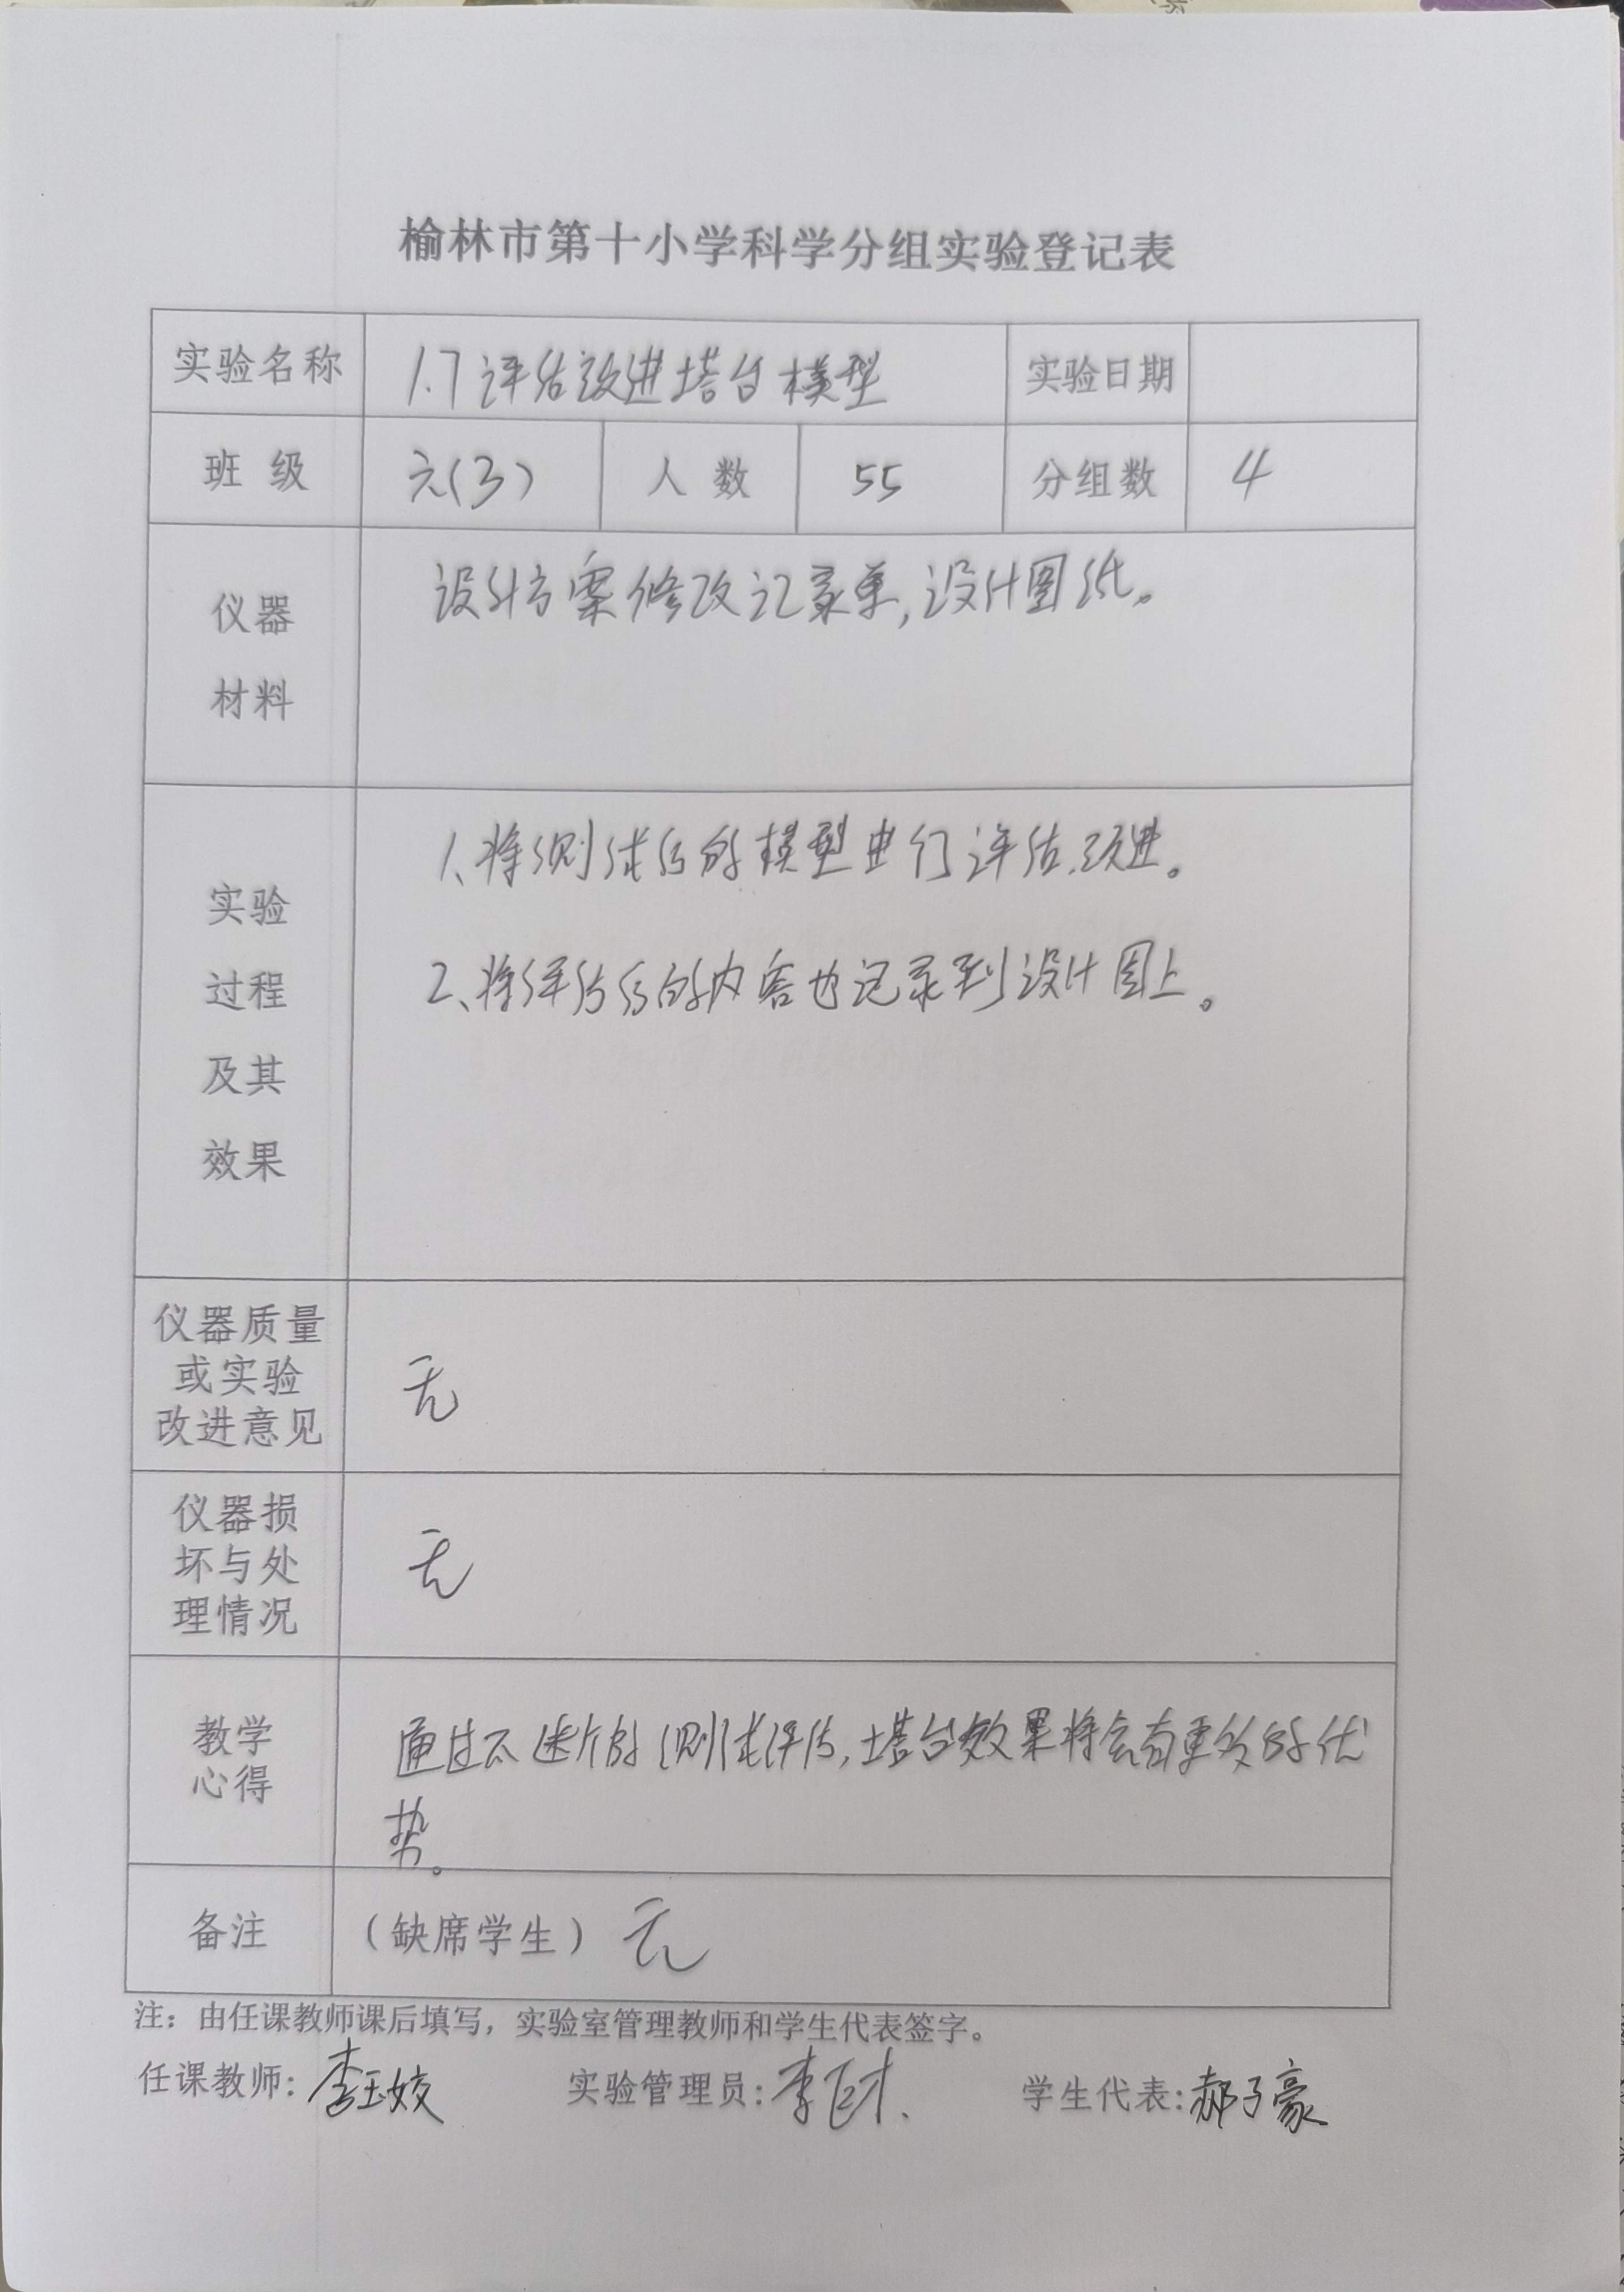 榆林市第十小学科学分组实验登记表
实验名称 1.7 评估改进塔台模型 实验日期
班 级 六(3) 人 数 55 分组数 4
仪器
材料
设计方案修改记录单,设计图纸。
实验
过程
及其
效果
1、将测试后的模型进行评估、改进。
2、将评估后的内容也记录到设计图上。
仪器质量
或实验
改进意见
无
仪器损
坏与处
理情况
无
教学
心得
通过不断的测试评估,塔台效果将会有更多的优
势。
备注 (缺席学生) 无
注：由任课教师课后填写，实验室管理教师和学生代表签字。
任课教师: 李玉姣 实验管理员: 李 学生代表: 郝子豪